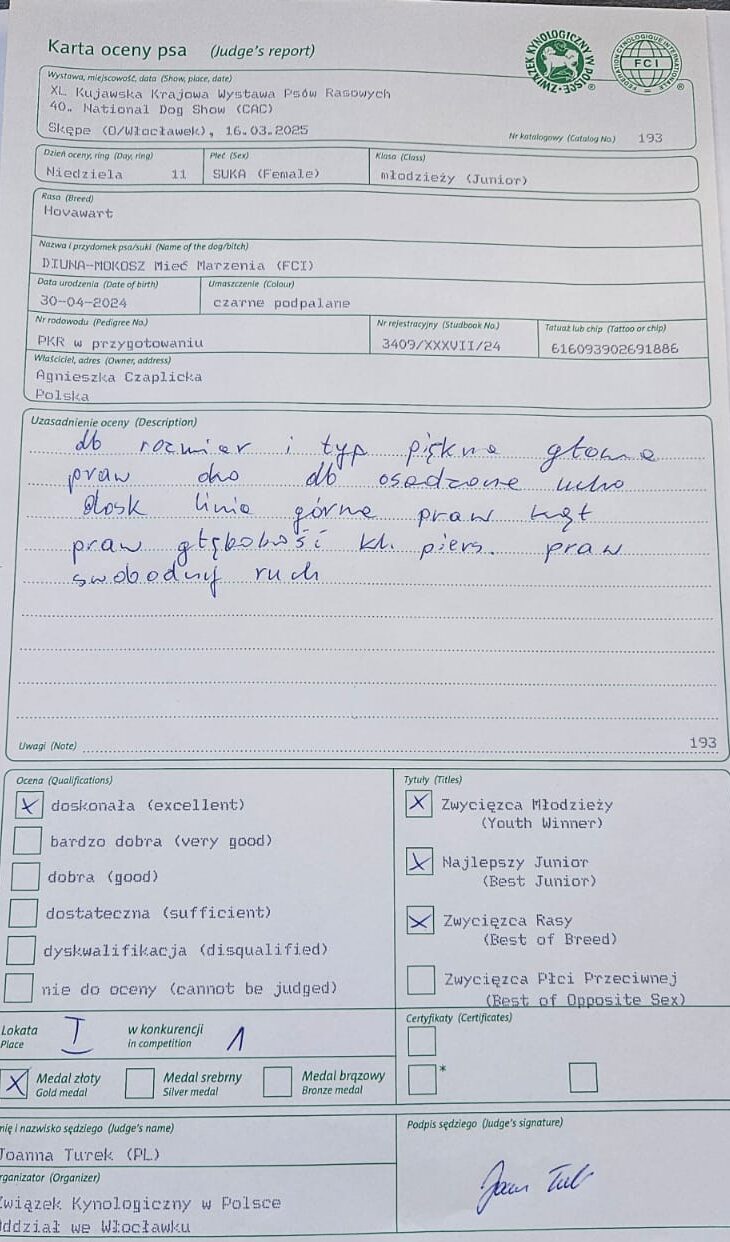 Karta oceny psa (Judge's report)
ZWIĄZEK KYNOLOGICZNY W POLSCE
FEDERATION CYNOLOGIQUE INTERNATIONALE
FCI
Wystawa, miejscowość, data (Show, place, date)
XL Kujawska Krajowa Wystawa Psów Rasowych
40. National Dog Show (CAC)
Skępe (O/Włocławek), 16.03.2025
Nr katalogowy (Catalog No.) 193
Dzień oceny, ring (Day, ring) Płeć (Sex) Klasa (Class)
Niedziela 11 SUKA (Female) młodzieży (Junior)
Rasa (Breed)
Hovawart
Nazwa i przydomek psa/suki (Name of the dog/bitch)
DIUNA-MOKOSZ Mieć Marzenia (FCI)
Data urodzenia (Date of birth) Umaszczenie (Colour)
30-04-2024 czarne podpalane
Nr rodowodu (Pedigree No.) Nr rejestracyjny (Studbook No.) Tatuaż lub chip (Tattoo or chip)
PKR w przygotowaniu 3409/XXXVII/24 616093902691886
Właściciel, adres (Owner, address)
Agnieszka Czaplicka
Polska
Uzasadnienie oceny (Description)
db rozmiar i typ piękna głowa
praw oko db osadzone ucho
dosk linia górna praw kąt
praw głębokość kl. piers. praw
swobodny ruch
Uwagi (Note) 193
Ocena (Qualifications)
x doskonała (excellent)
bardzo dobra (very good)
dobra (good)
dostateczna (sufficient)
dyskwalifikacja (disqualified)
nie do oceny (cannot be judged)
Tytuły (Titles)
x Zwycięzca Młodzieży
(Youth Winner)
x Najlepszy Junior
(Best Junior)
x Zwycięzca Rasy
(Best of Breed)
Zwycięzca Płci Przeciwnej
(Best of Opposite Sex)
Lokata I w konkurencji 1
Place in competition
Certyfikaty (Certificates)
*
x Medal złoty Medal srebrny Medal brązowy
Gold medal Silver medal Bronze medal
nię i nazwisko sędziego (Judge's name)
Joanna Turek (PL)
Podpis sędziego (Judge's signature)
rganizator (Organizer)
Związek Kynologiczny w Polsce
Oddział we Włocławku